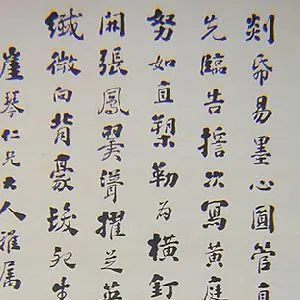 剡帋易墨心圓管直
先臨告誓次寫黃庭
努如直槊勒為橫釘
開張鳳翼聳擢芝英
纖微向背毫髮死生
崖琴仁兄大人雅属